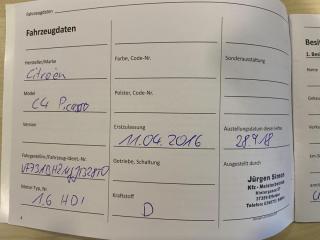 Fahrzeugdaten
Fahrzeugdaten
Hersteller/Marke
Citroën
Farbe, Code-Nr.
Sonderausstattung
Model
C4 Picasso
Polster, Code-Nr.
Version
Erstzulassung
11.04.2016
Ausstellungsdatum dieses Heftes
28.9.18
Fahrgestellnr./Fahrzeug-Ident.-Nr.
Getriebe, Schaltung
Ausgestellt durch
Jürgen Simon
Kfz - Meisterbetrieb
Motor Typ, Nr
1,6 HDI
Kraftstoff
D
4